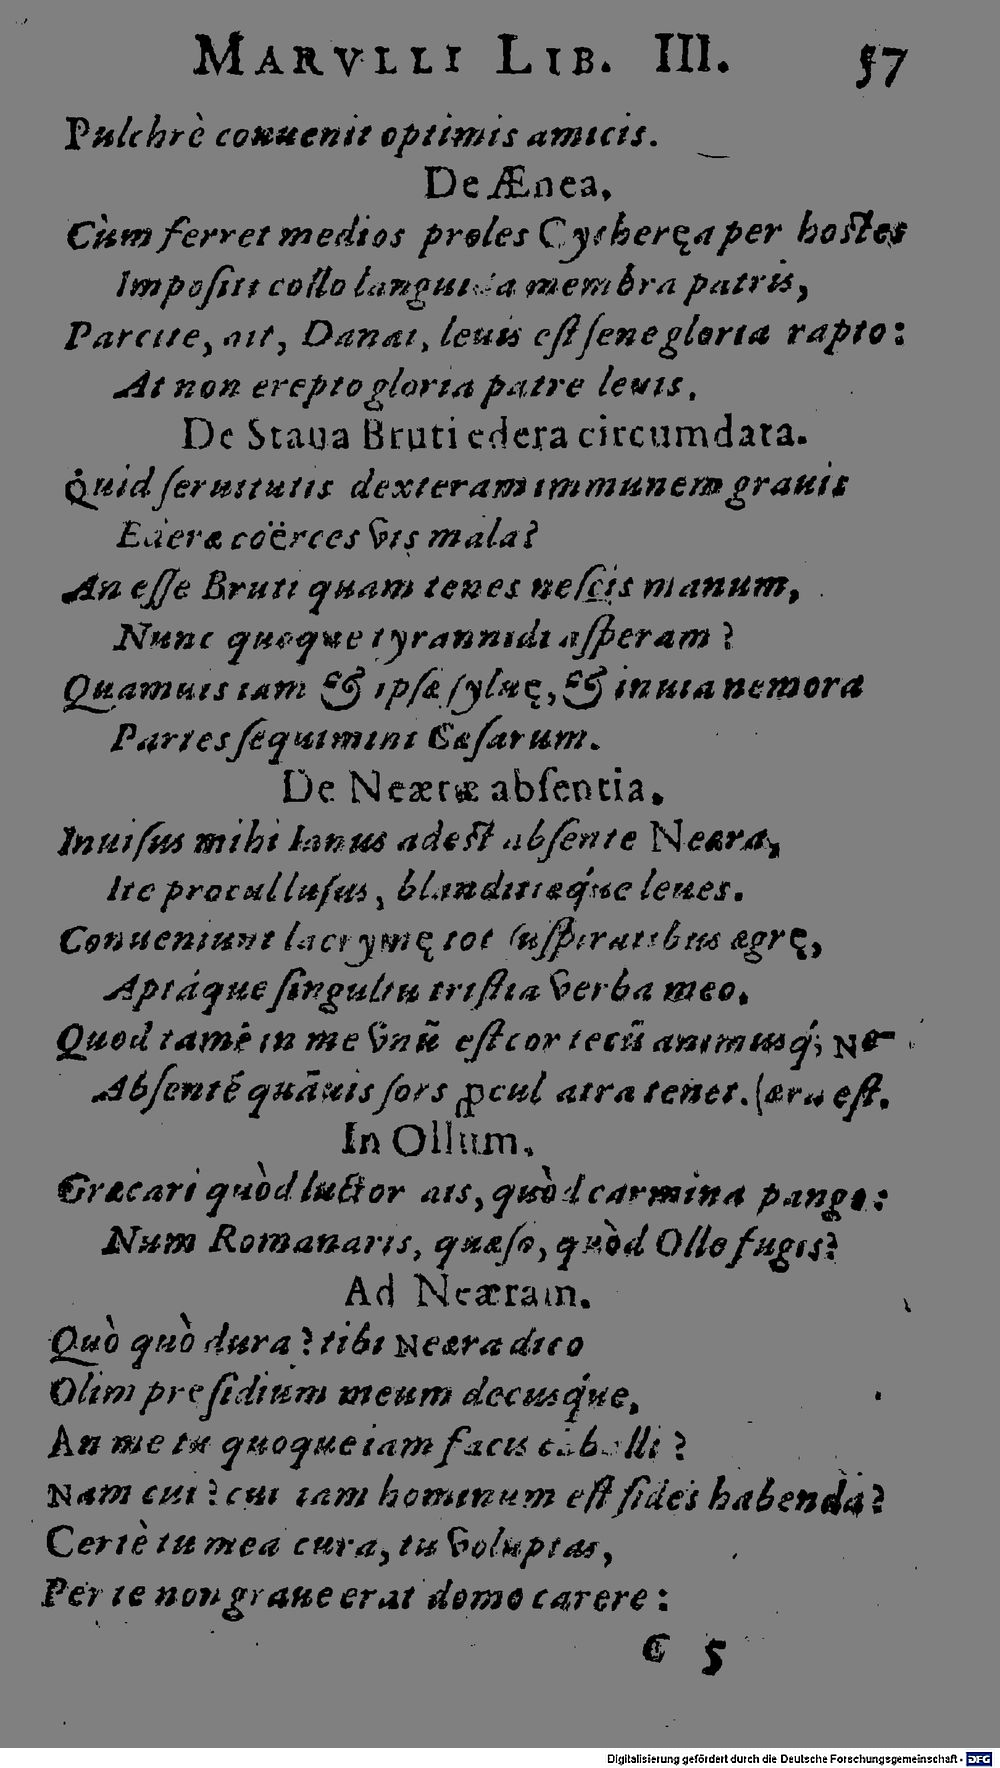 MARVLLI LIB. III. 57
Pulchrè conuenit optimis amicis.
De Ænea.
Cùm ferret medios proles Cythereę a per hostes
Impositi collo languida membra patris,
Parcite, ait, Danai, leuis est sene gloria rapto:
At non erepto gloria patre leuis.
De Staua Bruti edera circumdata.
Quid seruitutis dexteram immunem grauis
Ederæ coërces vis mala?
An esse Bruti quam tenes nescis manum,
Nunc quoque tyrannidi asperam?
Quamuis iam & ipsæ syluę, & inuia nemora
Partes sequimini Cæsarum.
De Neæræ absentia.
Inuisus mihi Ianus adest absente Neæra,
Ite procul lusus, blanditiæq́ue leues.
Conueniunt lacrymę tot suspiratibus ægrę,
Aptáque singultu tristia verba meo.
Quod tamē in me vnū est cor tecū animusq́; Ne-
Absentē quāuis sors ꝓcul atra tenet. (æra est.
In Ollum.
Græcari quòd luctor ais, quòd carmina pango:
Num Romanaris, quæso, quòd Olle fugis?
Ad Neæram.
Quò quò dura? tibi Neæra dico
Olim presidium meum decusq́ue,
An me tu quoque iam facis caballi?
Nam cui? cui iam hominum est fides habenda?
Certè tu mea cura, tu voluptas,
Per te non graue erat domo carere:
C 5
Digitalisierung gefördert durch die Deutsche Forschungsgemeinschaft - DFG